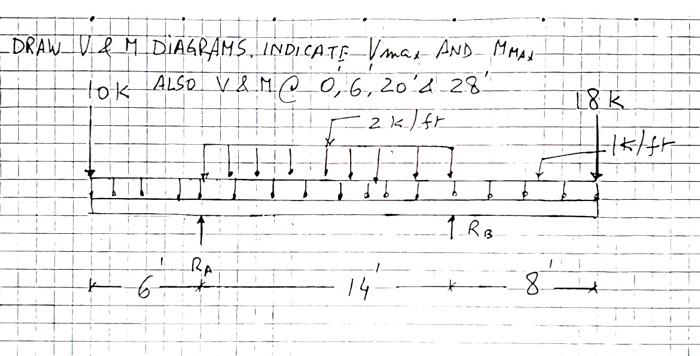 DRAW V & M DIAGRAMS. INDICATE Vmax AND MMAX
ALSO V & M @ 0', 6', 20' & 28'
10K
18K
2 K/ft
1K/ft
RA
RB
6'
14'
8'